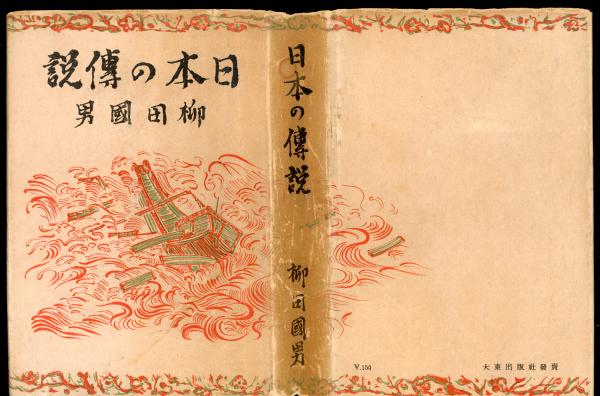 日本の傳説
柳田國男
日本の傳説
柳田國男
¥.150
大東出版社發賣